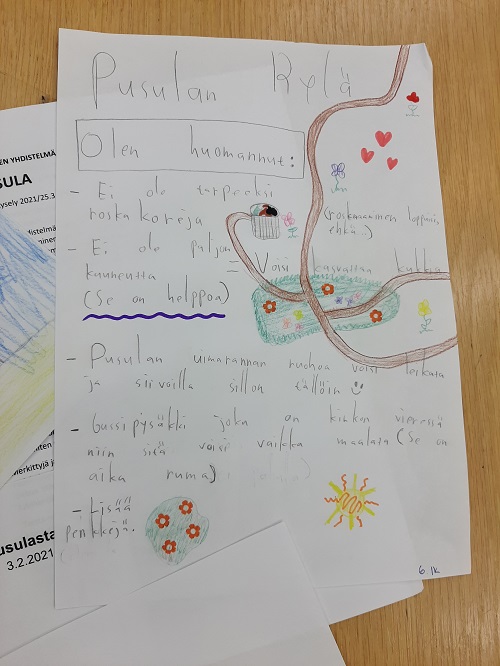 Pusulan Kylä
Olen huomannut:
- Ei ole tarpeeksi
roskakoreja
(roskaaminen loppuisi
ehkä.)
- Ei ole paljon
kauneutta = Voisi kasvattaa kukkia
(Se on helppoa)
- Pusulan uimarannan ruohoa voisi leikata
ja siivailla sillon tällöin
- bussipysäkki joka on kirkon vieressä
niin sitä voisi vaikka maalata (Se on
aika ruma)
- Lisää
penkkejä.
6.lk
EN YHDISTELMÄ
SULA
ysely 2021/25.3
merkittyjä
usulasta
3.2.2021